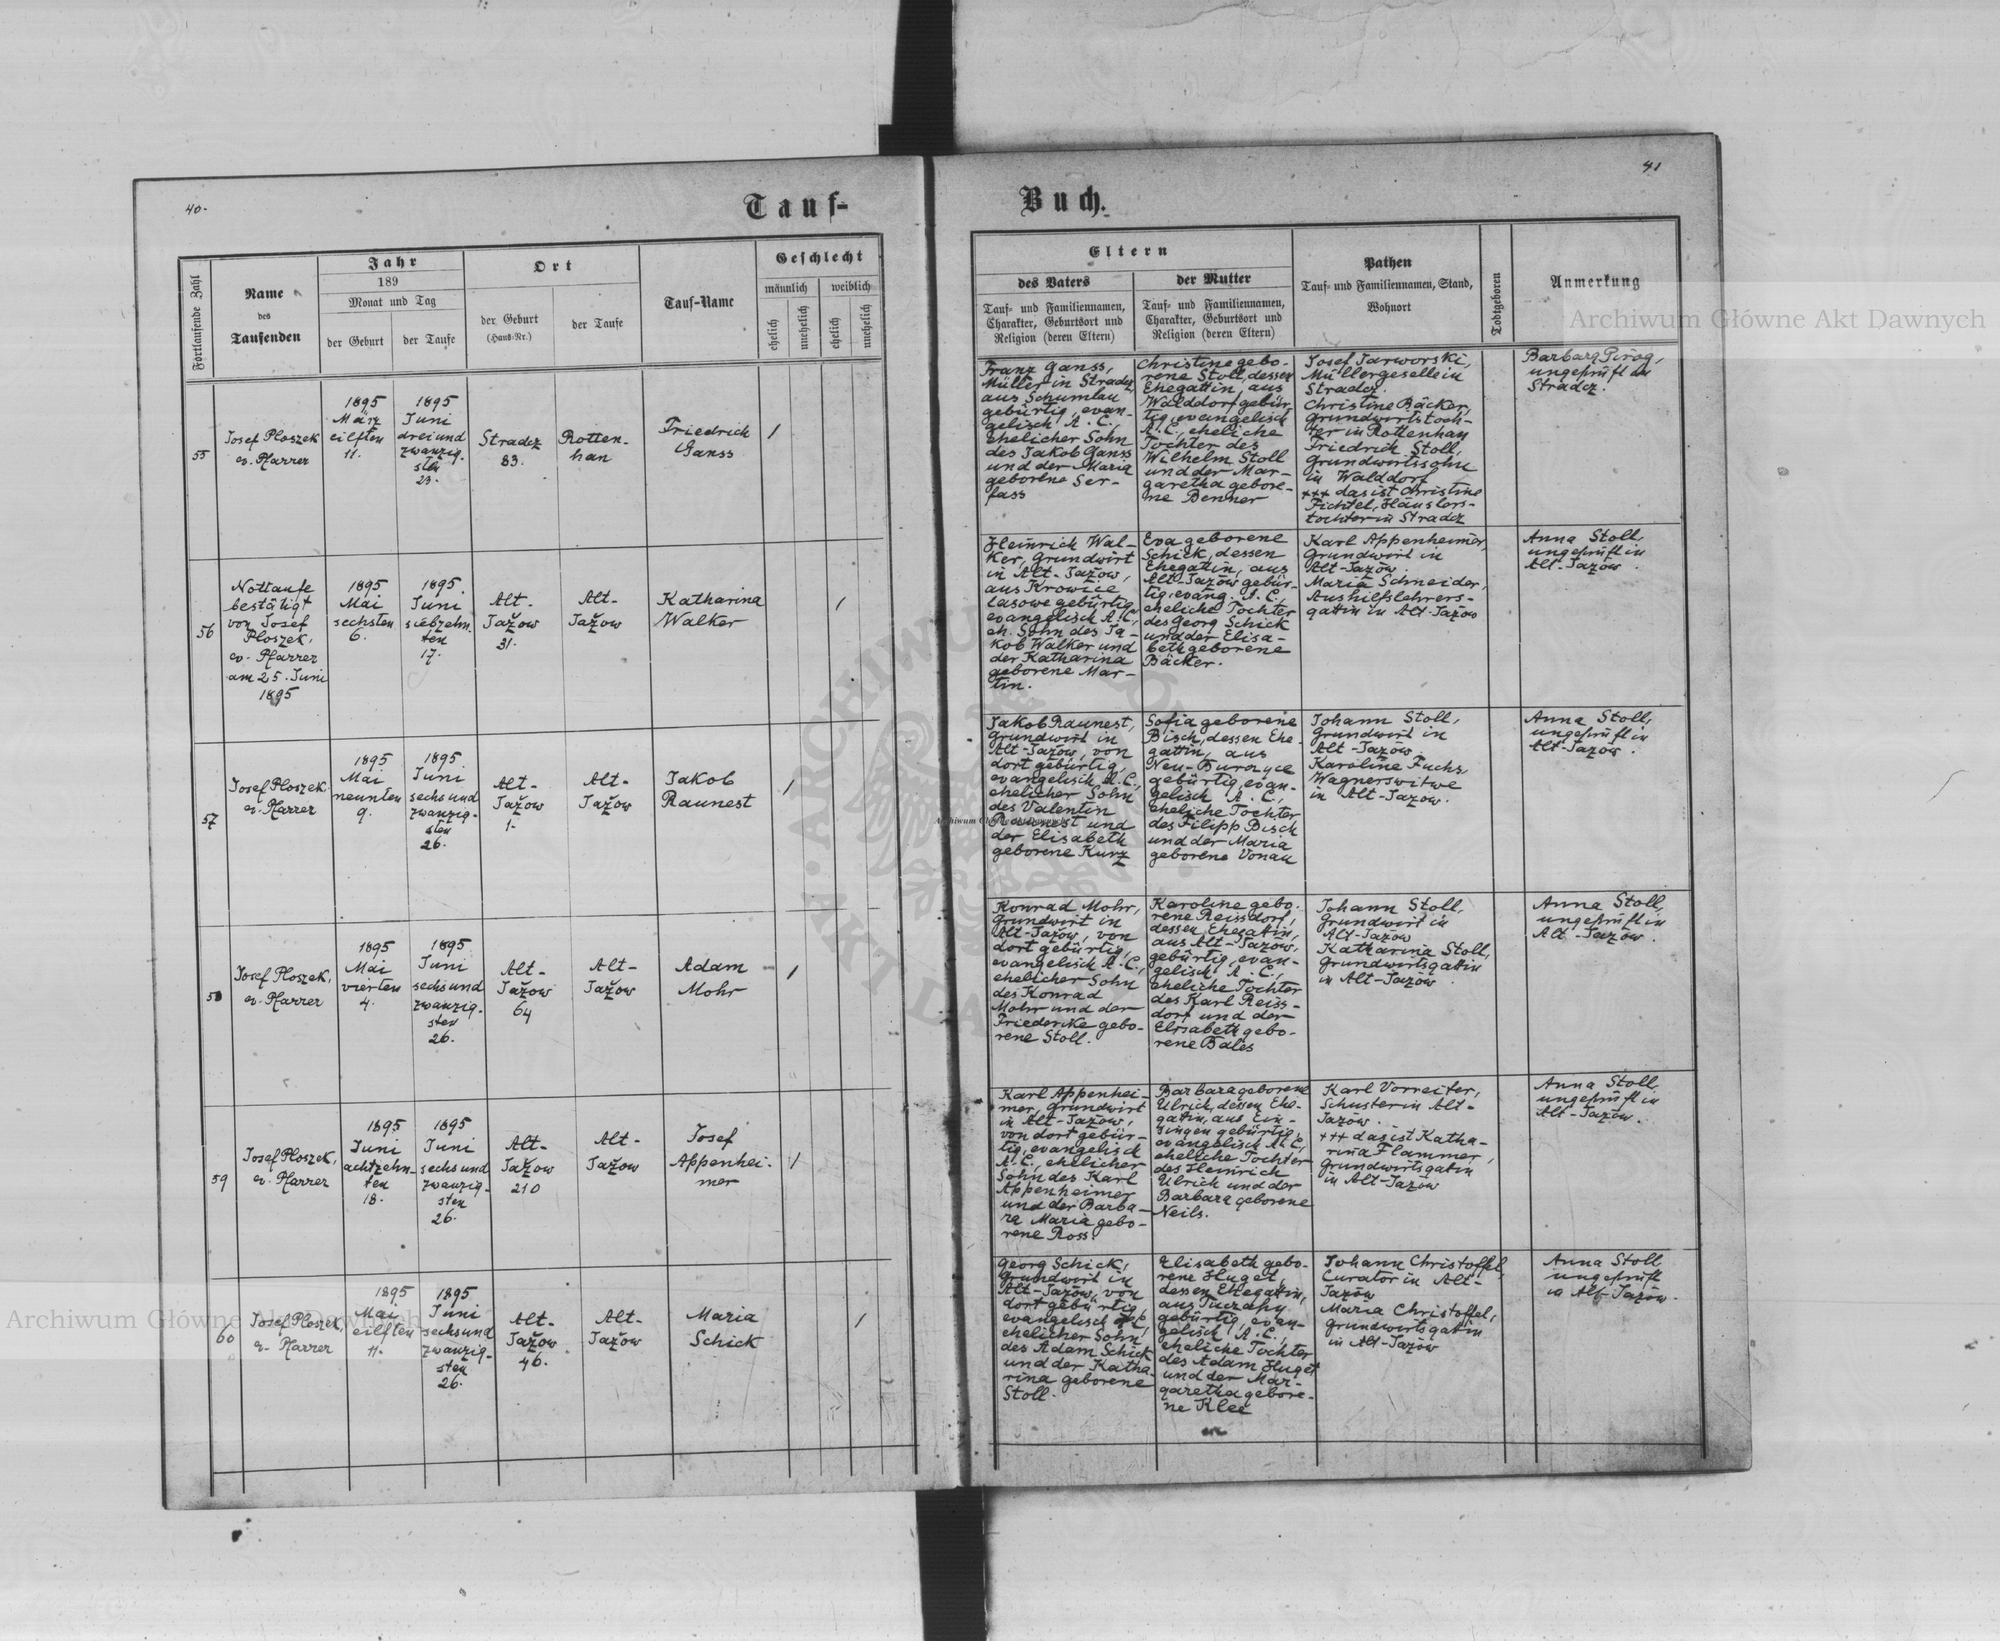 40.
41
Tauf-
Buch.
Fortlaufende Zahl
Name
des
Taufenden
Jahr
189
Monat und Tag
der Geburt
der Taufe
Ort
der Geburt
(Haus-Nr.)
der Taufe
Tauf-Name
Geschlecht
männlich
weiblich
ehelich
unehelich
ehelich
unehelich
Eltern
des Vaters
Tauf- und Familiennamen,
Charakter, Geburtsort und
Religion (deren Eltern)
der Mutter
Tauf- und Familiennamen,
Charakter, Geburtsort und
Religion (deren Eltern)
Pathen
Tauf- und Familiennamen, Stand,
Wohnort
Todtgeboren
Anmerkung
55
Josef Ploszek
ev. Pfarrer
1895
März
eilften
11.
1895
Juni
drei und
zwanzig-
sten
23.
Stradcz
83.
Rotten-
han
Friedrich
Ganss
1
Franz Ganss,
Müller in Stradcz,
aus Schumlau
gebürtig, evan-
gelisch A. C.,
ehelicher Sohn
des Jakob Ganss
und der Maria
geborene Ser-
fass
Christine gebo-
rene Stoll, dessen
Ehegattin, aus
Walddorf gebür-
tig, evangelisch
A. C., eheliche
Tochter des
Wilhelm Stoll
und der Mar-
garetha gebore-
ne Benner
Josef Jarworski,
Müllergeselle in
Stradcz.
Christine Bäcker,
Grundwirtstoch-
ter in Rottenhan
Friedrich Stoll,
Grundwirtssohn
in Walddorf
+++ das ist Christine
Fichtel, Häuslers-
tochter in Stradcz
Barbara Pirog,
ungeprüft in
Stradcz.
56
Nottaufe
bestätigt
von Josef
Ploszek,
ev. Pfarrer
am 25. Juni
1895
1895
Mai
sechsten
6.
1895.
Juni
siebzehn-
ten
17.
Alt-
Jažow
31.
Alt-
Jažow
Katharina
Walker
1
Heinrich Wal-
ker, Grundwirt
in Alt-Jazów,
aus Krowice
lasowe gebürtig,
evangelisch A. C.,
eh. Sohn des Ja-
kob Walker und
der Katharina
geborene Mar-
tin.
Eva geborene
Schick, dessen
Ehegattin, aus
Alt-Jazów gebür-
tig, evang. A. C.,
eheliche Tochter
des Georg Schick
und der Elisa-
beth geborene
Bäcker.
Karl Appenheimer,
Grundwirt in
Alt-Jazów.
Maria Schneider,
Aushilfslehrers-
gattin in Alt-Jazów
Anna Stoll,
ungeprüft in
Alt-Jazów.
57
Josef Ploszek
ev. Pfarrer
1895
Mai
neunten
9.
1895.
Juni
sechs und
zwanzig-
sten
26.
Alt-
Jažow
1-
Alt-
Jažow
Jakob
Raunest
1
Jakob Raunest,
Grundwirt in
Alt-Jazów, von
dort gebürtig,
evangelisch A. C.,
ehelicher Sohn
des Valentin
Raunest und
der Elisabeth
geborene Kurz
Sofia geborene
Bisch, dessen Ehe-
gattin, aus
Neu-Burczyce
gebürtig, evan-
gelisch A. C.,
eheliche Tochter
des Filipp Bisch
und der Maria
geborene Vonau
Johann Stoll,
Grundwirt in
Alt-Jazów.
Karoline Fuchs,
Wagnerswitwe
in Alt-Jazów.
Anna Stoll,
ungeprüft in
Alt-Jazów.
58
Josef Ploszek,
ev. Pfarrer
1895
Mai
vierten
4.
1895.
Juni
sechs und
zwanzig-
sten
26.
Alt-
Jažow
64
Alt-
Jažow
Adam
Mohr
1
Konrad Mohr,
Grundwirt in
Alt-Jazów, von
dort gebürtig,
evangelisch A. C.,
ehelicher Sohn
des Konrad
Mohr und der
Friederike gebo-
rene Stoll.
Karoline gebo-
rene Reissdorf,
dessen Ehegattin,
aus Alt-Jazów,
gebürtig, evan-
gelisch A. C.,
eheliche Tochter
des Karl Reiss-
dorf und der
Elisabeth gebo-
rene Bales
Johann Stoll,
Grundwirt in
Alt-Jazów
Katharina Stoll,
Grundwirtsgattin
in Alt-Jazów.
Anna Stoll,
ungeprüft in
Alt-Jazów.
59
Josef Ploszek,
ev. Pfarrer
1895
Juni
achtzehn-
ten
18.
1895
Juni
sechs und
zwanzig-
sten
26.
Alt-
Jažow
210
Alt-
Jažow
Josef
Appenhei-
mer
1
Karl Appenhei-
mer, Grundwirt
in Alt-Jazów,
von dort gebür-
tig, evangelisch
A. C., ehelicher
Sohn des Karl
Appenheimer
und der Barba-
ra Maria gebo-
rene Ross.
Barbara geborene
Ulrich, dessen Ehe-
gattin, aus Ein-
singen gebürtig,
evangelisch A. C.,
eheliche Tochter
des Heinrich
Ulrich und der
Barbara geborene
Neils.
Karl Vorreiter,
Schuster in Alt-
Jazów.
+++ das ist Katha-
rina Flammer,
Grundwirtsgattin
in Alt-Jazów
Anna Stoll,
ungeprüft in
Alt-Jazów.
60
Josef Ploszek,
ev. Pfarrer
1895
Mai
eilften
11.
1895
Juni
sechs und
zwanzig-
sten
26.
Alt-
Jažow
46.
Alt-
Jažow
Maria
Schick
1
Georg Schick,
Grundwirt in
Alt-Jazów, von
dort gebürtig,
evangelisch A. C.,
ehelicher Sohn
des Adam Schick
und der Katha-
rina geborene
Stoll.
Elisabeth gebo-
rene Huget,
dessen Ehegattin,
aus Tuczapy
gebürtig, evan-
gelisch A. C.,
eheliche Tochter
des Adam Huget
und der Mar-
garetha gebore-
ne Klee
Johann Christoffel,
Curator in Alt-
Jazów
Maria Christoffel,
Grundwirtsgattin
in Alt-Jazów
Anna Stoll
ungeprüft
in Alt-Jazów.
Archiwum Główne Akt Dawnych
Archiwum Główne Akt Dawnych
Archiwum Główne Akt Dawnych